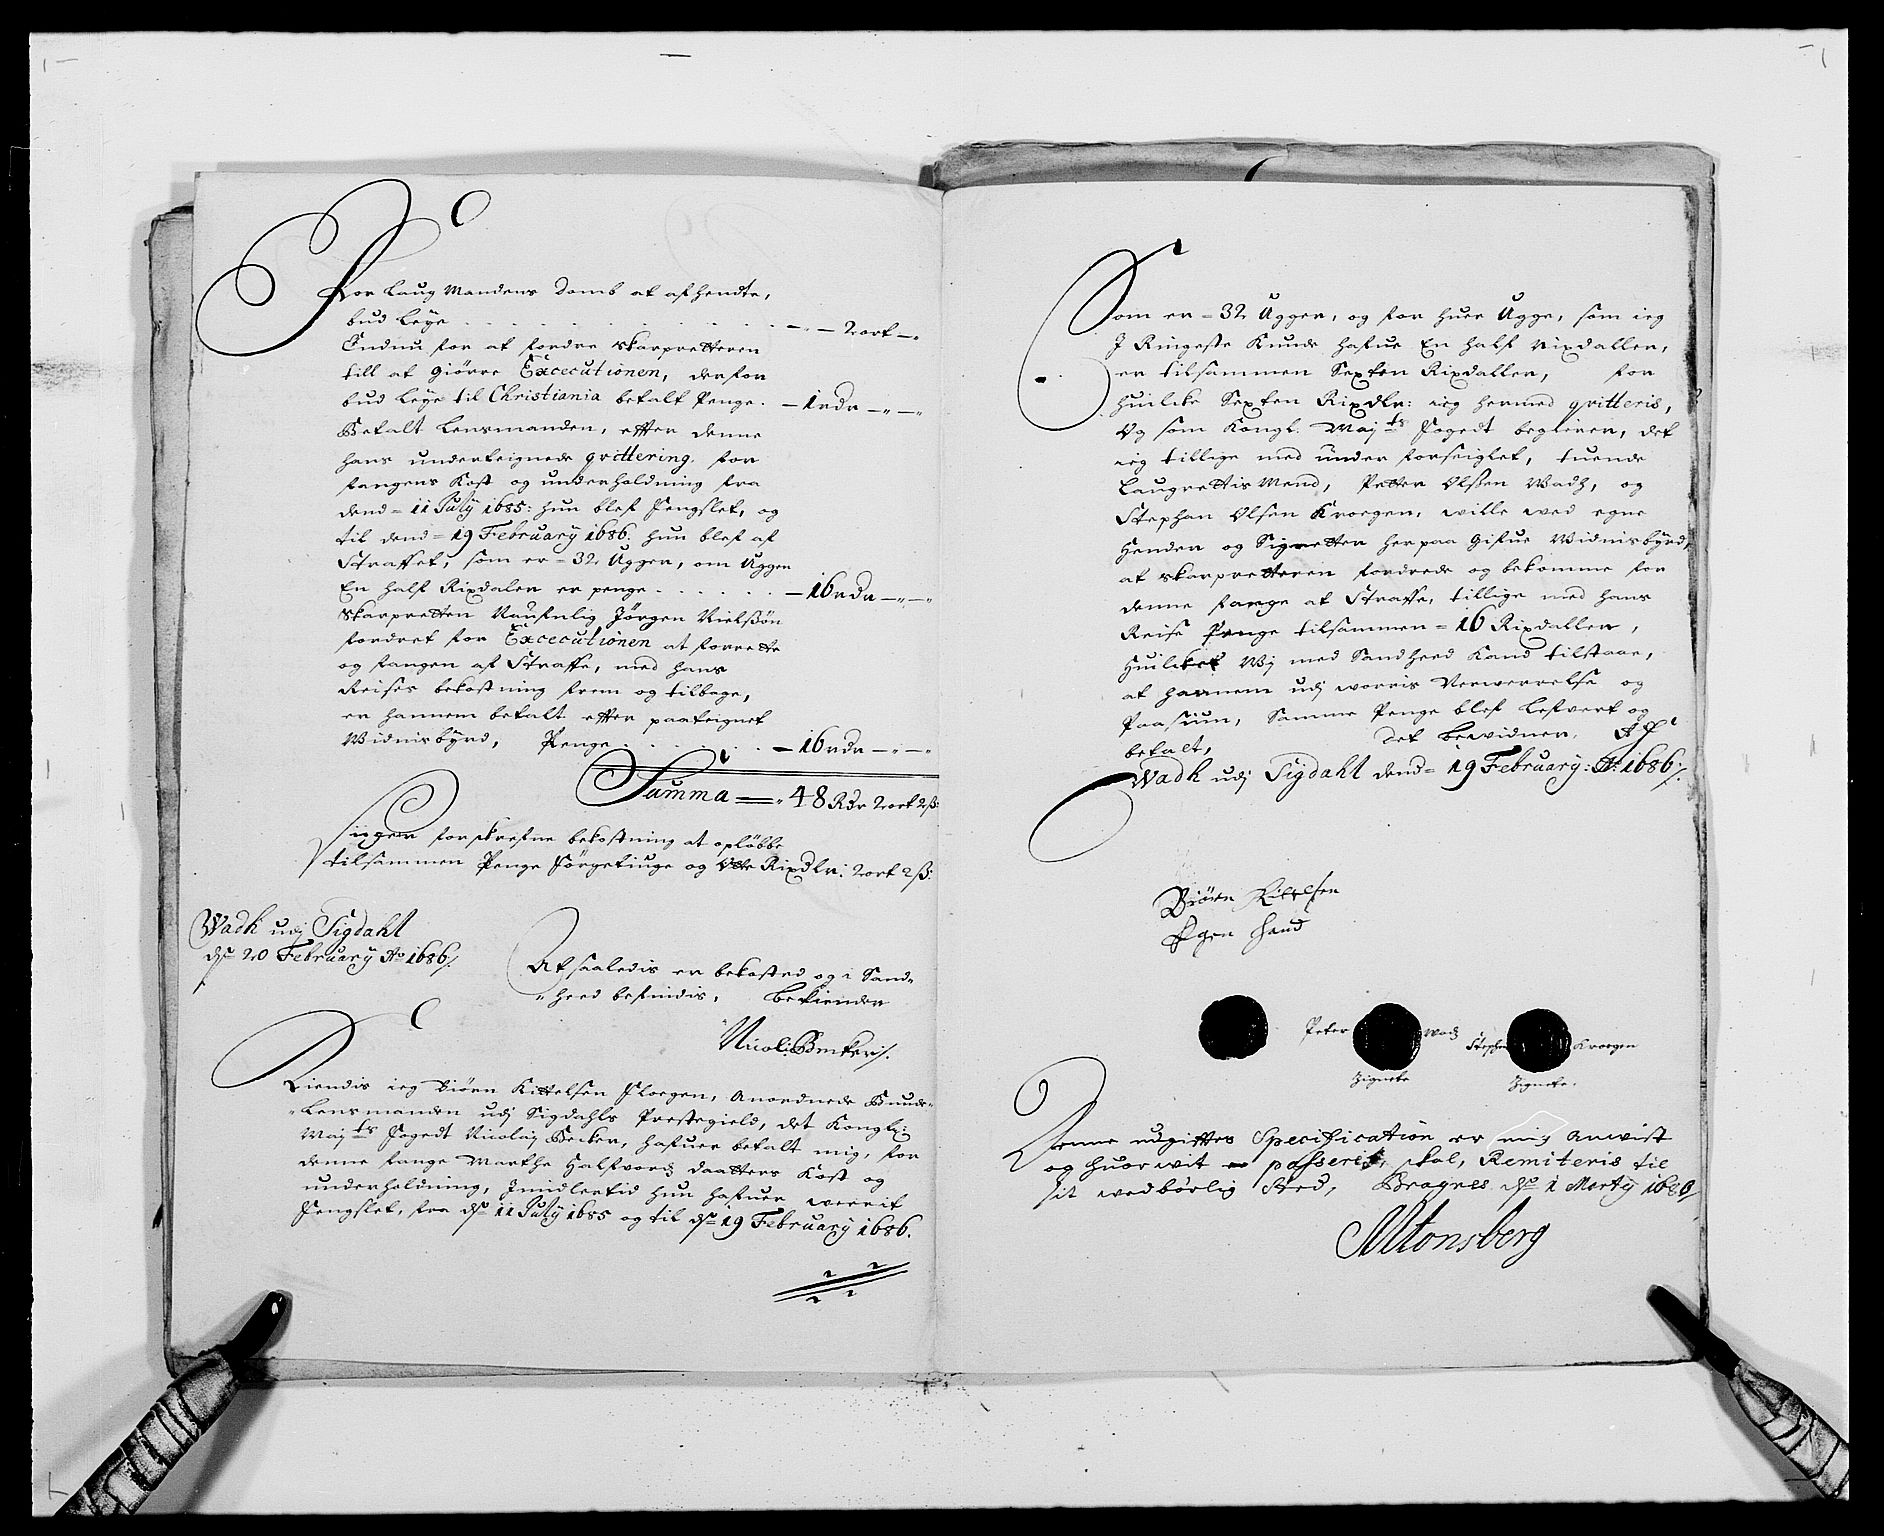 For Laug Mandens Domb at afhendte,
bud leye . . . . . . . . . — " — 2 ort — "
Endnu for at fordre skarpretteren
till at giørre Excecutionen, derfor
bud leye til Christiania betalt Penge. — 1 rdr — " — "
Betalt Lensmanden, effter denne
hans underteignede qvittering, for
fangens Kost og underholdning fra
dend = 11 July 1685: hun blef Fengslet, og
til dend = 19 February 1686. hun blef af
Straffet, som er = 32 Ugger, om Uggen
En half Rixdaler er penge . . . . . — 16 rdr — " — "
Skarpretten Naufnlig Jørgen Nielsøn
fordret for Excecutionen at forrette
og fangen af Straffe, med hans
Reises bekostning frem og tilbage,
er hannem betalt effter paateignet
Widnisbyrd, Penge . . . . . — 16 rdr — " — "
Summa — " 48 Rdr 2 ort 2 ß:
forskrefne bekostning at opløbbe
tilsammen Penge Førgetiuge og Otte Rixdlr: 2 ort 2 ß:
Wadh udj Sigdahl
dn 20 February Ao 1686/.
At saaledis er bekosted og i Sand=
"heed befindis, Bekiender
Nicolj Beckeris.
Kiendis ieg Biørn Kittelsen Floegen, Anordnede Bunde=
"Lensmanden udj Sigdahls Prestegield, det Kongl:
Maijts Fogedt Nicolaj Becker, hafuer betalt mig, for
denne fange Marthe Halfvordz daatters Kost og
underholdning, Jmidlertid hun hafuer werrit
Fengslet, fra dn 11 July 1685 og til dn 19 February 1686.
Som er = 32 Ugger, og for huer Ugge, som ieg
J Ringeste Kunde hafue En half Rixdaller,
er tilsammen Sexten Rixdaller, for
huilcke Sexten Rixdlr: ieg hermed qvitteris,
Og som Kongl. Maijts Fogedt begierer, det
ieg tillige med under forseiglet, tuende
Laugrettis Mend, Petter Olsen Wadh, og
Stephan Olsen Kroegen, wille wed egne
Hender og Signetter herpaa Gifue Widnisbyrd,
at skarpretteren fordrede og bekomme for
denne fange at Straffe, tillige med hans
Reise Penge tilsammen = 16 Rixdaller,
Huilcket Wj med Sandheed Kand tilstaae,
at hannem udj worris Verwerrelse og
Paasiun, Samme Penge blef Lefvert og
betalt, Det bewidner,
Wadh udj Sigdahl dend = 19 February: Ao: 1686/.
Biørn Kittelsen
Egen Haand
Peter Wadh
Zignete
Stephen Kroegen
Zignete.
Denne udgifftes Specification er mig Anwist
og huorwit passeris, skal, Remiteris til
sit wedbörlig Sted, Bragnes dn 1 Marty 1686/
Altonsberg